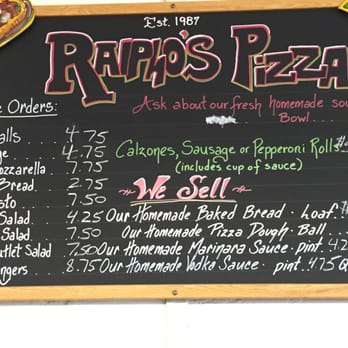 Est. 1987
RALPHO'S PIZZA
Ask about our fresh homemade sou
Bowl....
e Orders:
alls . . 4.75
ge . . 4.75
ozzarella . 7.75
Bread . . 2.75
sto . . 7.50
Salad . . 4.25
Salad . . 7.50
utlet Salad 7.50
ngers . . 8.75
Calzones, Sausage or Pepperoni Rolls $
(includes cup of sauce)
~We Sell~
Our Homemade Baked Bread · Loaf $
Our Homemade Pizza Dough · Ball ...
Our Homemade Marinara Sauce · pint. 4.2
Our Homemade Vodka Sauce · pint. 4.75 Q